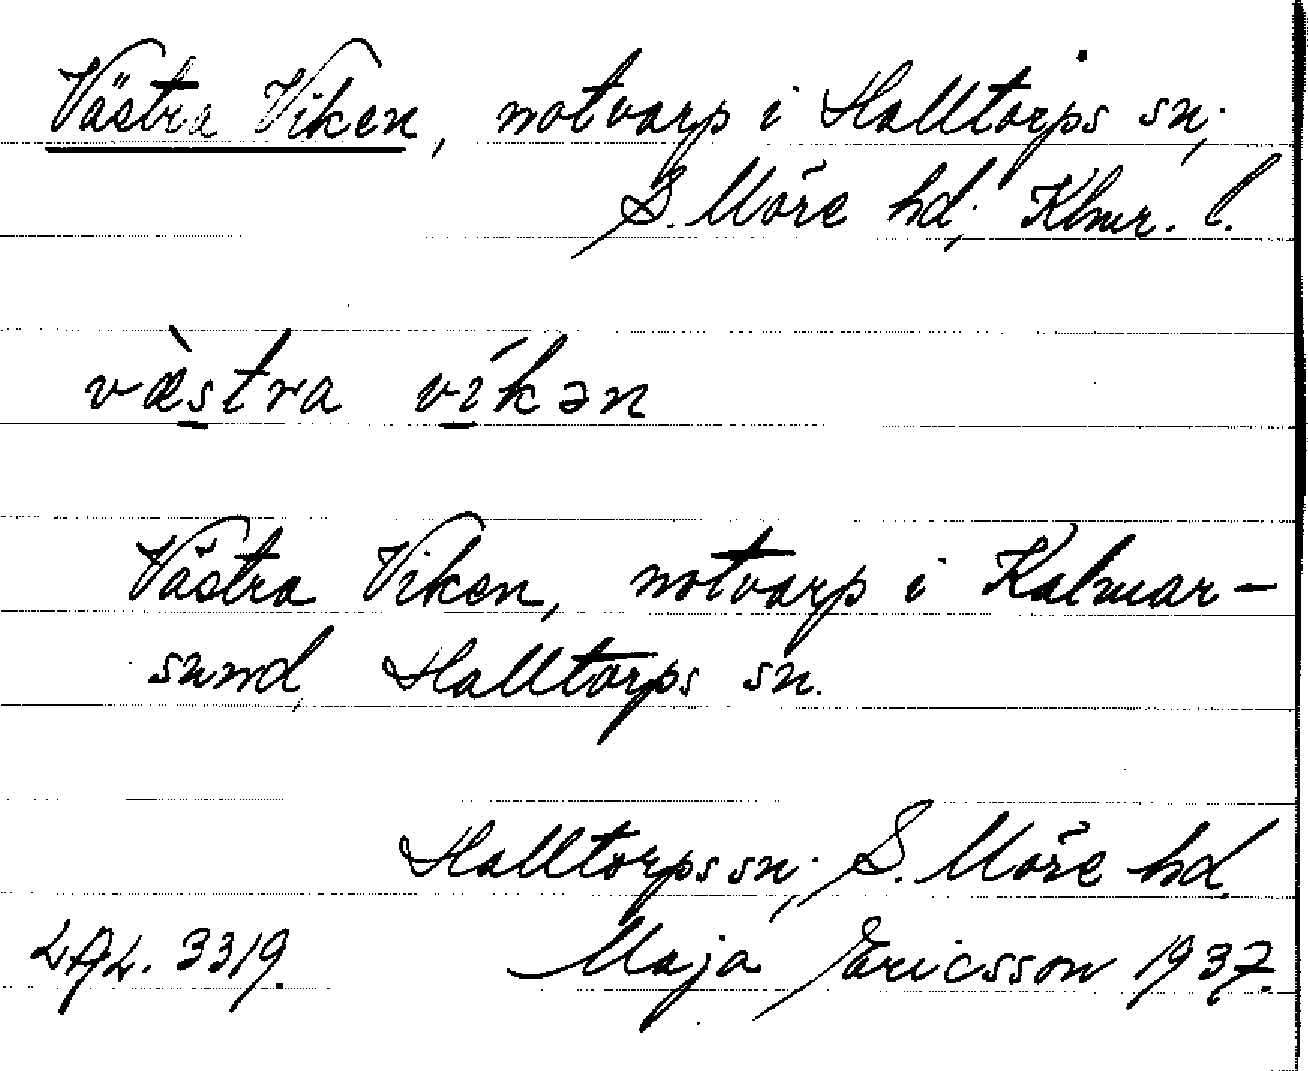 Västra Viken, notvarp i Halltorps sn,
S. Möre hd, Klmr. l.
væ̀stra víkən
Västra Viken, notvarp i Kalmar-
sund, Halltorps sn.
Halltorps sn, S. Möre hd.
3319. Maja Ericsson 1937.